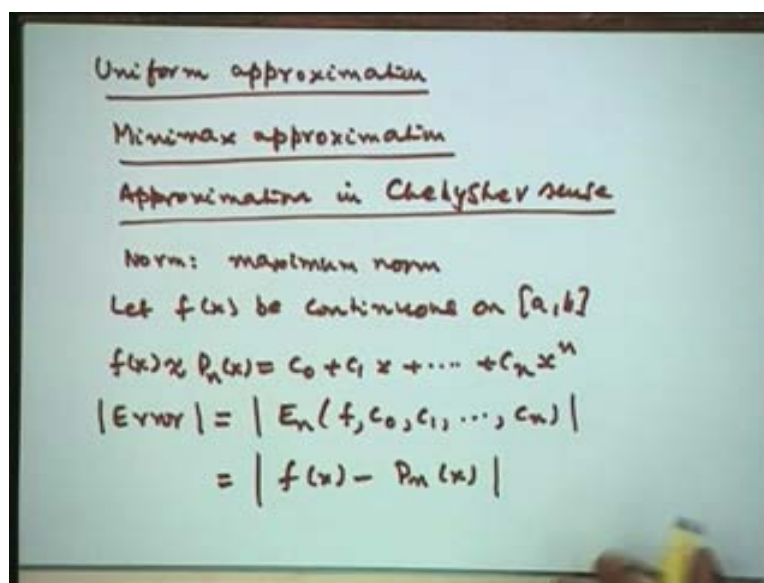 Uniform approximation
Minimax approximation
Approximation in Chebyshev sense
Norm: maximum norm
Let f(x) be continuous on [a, b]
f(x) ≈ Pn(x) = c0 + c1 x + .... + cn x^n
|Error| = | En(f, c0, c1, ..., cn) |
= | f(x) - Pn(x) |